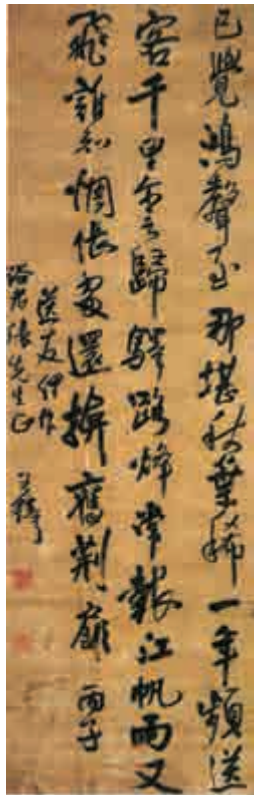 已覺鴻聲至那堪秋葉稀一年頻送
客千里尔言歸驛路烽常報江帆雨又
飛誰知惆悵處還掩舊荆扉 丙子
友作
張先生正 王鐸